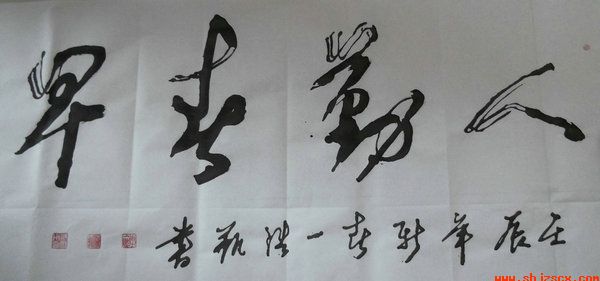 人勤春早
壬辰年新春一浩瓶书
www.shjzscx.com